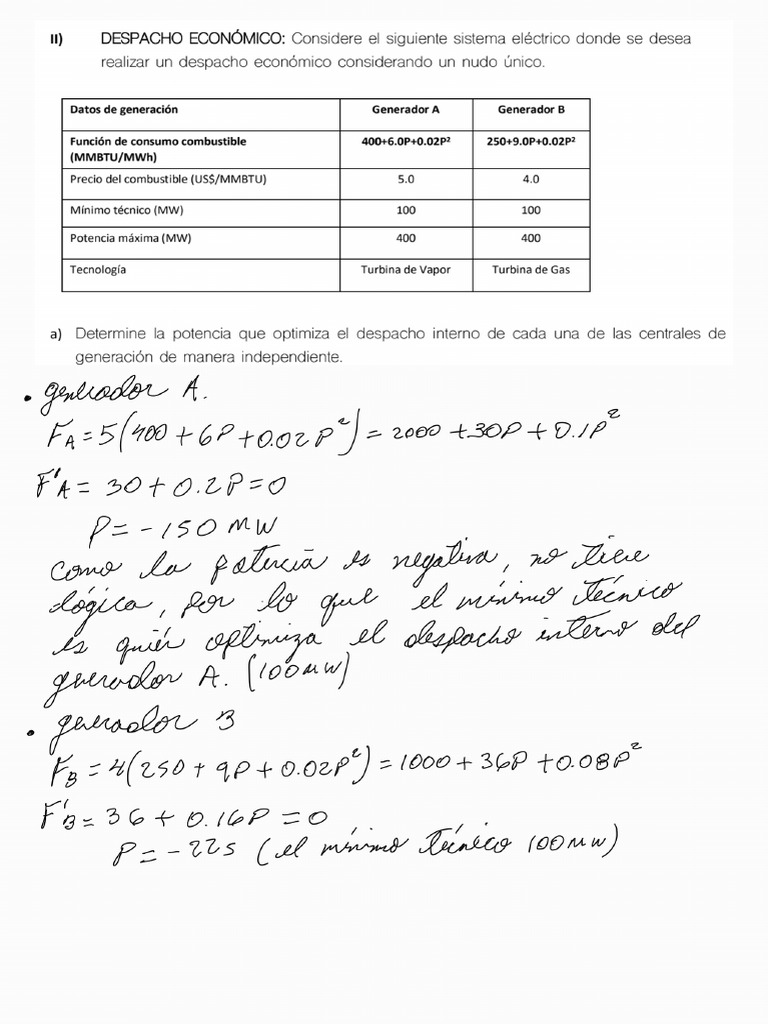 II) DESPACHO ECONÓMICO: Considere el siguiente sistema eléctrico donde se desea
realizar un despacho económico considerando un nudo único.
Datos de generación Generador A Generador B
Función de consumo combustible (MMBTU/MWh) 400+6.0P+0.02P² 250+9.0P+0.02P²
Precio del combustible (US$/MMBTU) 5.0 4.0
Mínimo técnico (MW) 100 100
Potencia máxima (MW) 400 400
Tecnología Turbina de Vapor Turbina de Gas
a) Determine la potencia que optimiza el despacho interno de cada una de las centrales de
generación de manera independiente.
• generador A.
F_A = 5(400 + 6P + 0.02P²) = 2000 + 30P + 0.1P²
F'_A = 30 + 0.2P = 0
P = -150 MW
como la potencia es negativa, no tiene
lógica, por lo que el mínimo técnico
es quién optimiza el despacho interno del
generador A. (100MW)
• generador B
F_B = 4(250 + 9P + 0.02P²) = 1000 + 36P + 0.08P²
F'_B = 36 + 0.16P = 0
P = -225 (el mínimo técnico 100MW)